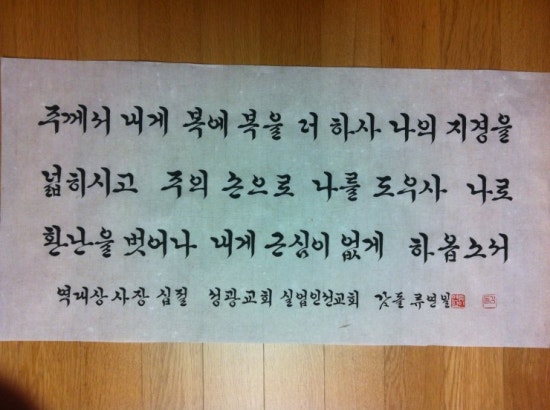 주께서 내게 복에 복을 더 하사 나의 지경을
넓히시고 주의 손으로 나를 도우사 나로
환난을 벗어나 내게 근심이 없게 하옵소서
역대상 사장 십절 성광교회 실업인선교회 갓돌 류연일